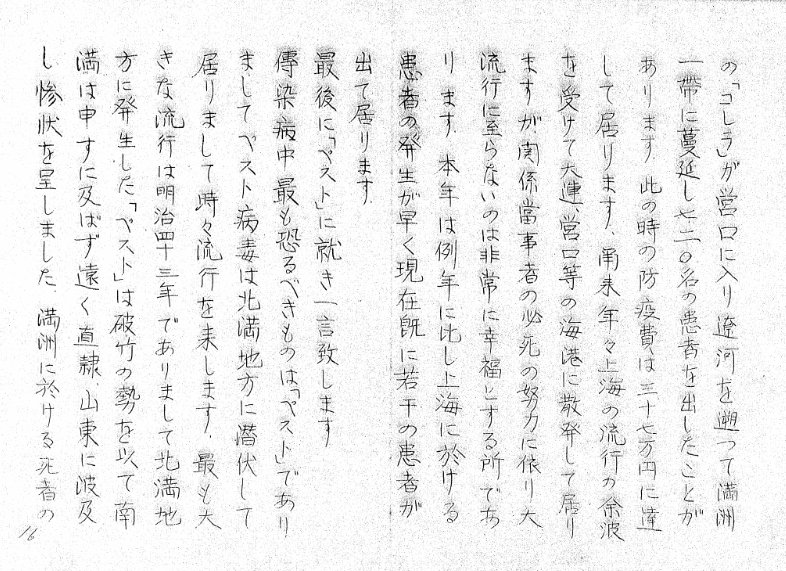 の「コレラ」が営口に入り遼河を遡つて満洲
一帯に蔓延し七二〇名の患者を出したことが
あります、此の時の防疫費は三十七万円に達
して居ります、爾来年々上海の流行の余波
を受けて大連、営口等の海港に散発して居り
ますが関係當事者の必死の努力に依り大
流行に至らないのは非常に幸福とする所であ
ります、本年は例年に比し上海に於ける
患者の発生が早く現在既に若干の患者が
出て居ります、
最後に「ペスト」に就き一言致します
傳染病中最も恐るべきものは「ペスト」であり
ましてペスト病毒は北満地方に潜伏して
居りまして時々流行を来します、最も大
きな流行は明治四十三年でありまして北満地
方に発生した「ペスト」は破竹の勢を以て南
満は申すに及ばず遠く直隷、山東に波及
し惨状を呈しました、満洲に於ける死者の
16